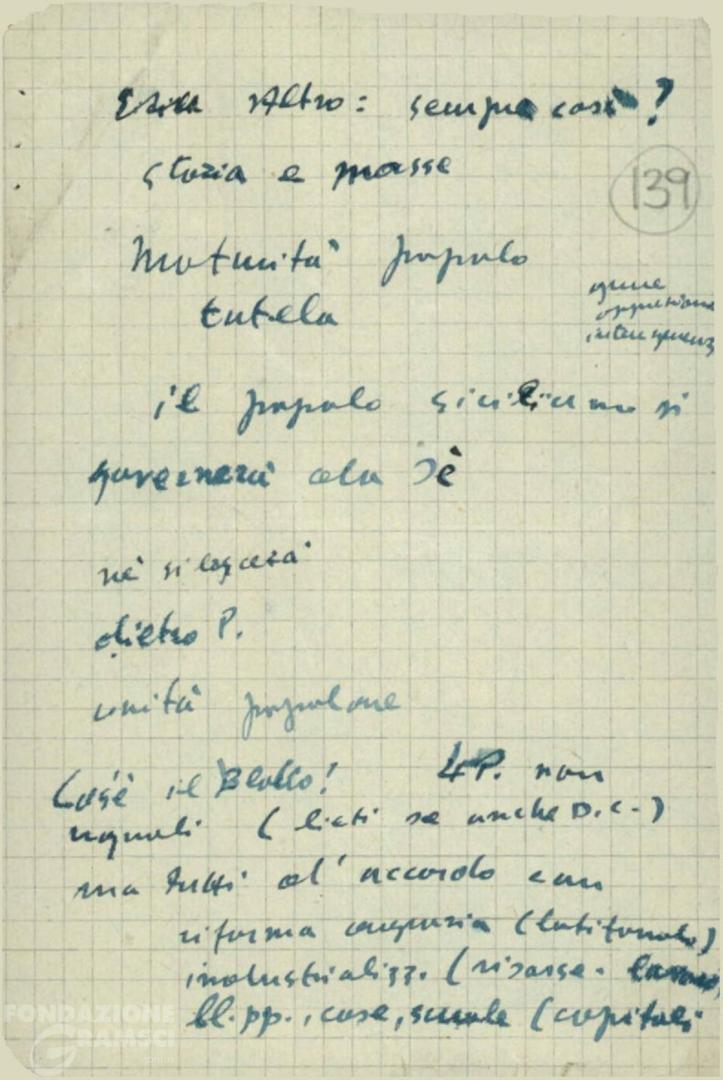 Altro: sempre così?
storia e masse
139
Maturità popolo
tutela
il popolo siciliano si
governerà da sè
nè si
dietro P.
unità popolare
Cos'è il Blocco! 4 P. non
uguali (lieti se anche D.C.)
ma tutti d'accordo con
riforma agraria (latifondo)
industrializz. (risorse.
ll.pp., case, scuole (capitali
FONDAZIONE
GRAMSCI